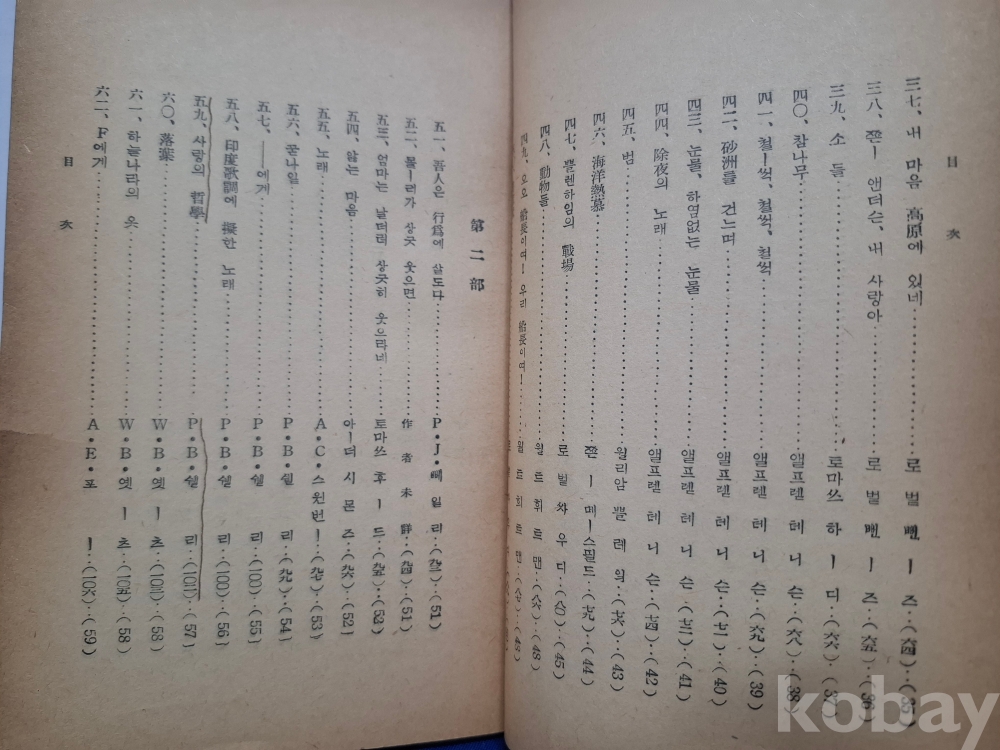 目 次
三七、내 마음 高原에 있네……로 벌 밴ー즈‥(六四)‥(35)
三八、쫀ー 앤더슨、내 사랑아……로 벌 밴ー즈‥(六五)‥(36)
三九、소 들……토마쓰 하ー디‥(六六)‥(37)
四〇、참나무……앨프렡 테니슨‥(六八)‥(38)
四一、철ー썩、철썩、철썩……앨프렡 테니슨‥(六九)‥(39)
四二、砂洲를 건느며……앨프렡 테니슨‥(七一)‥(40)
四三、눈물、하염없는 눈물……앨프렡 테니슨‥(七二)‥(41)
四四、除夜의 노래……앨프렡 테니슨‥(七四)‥(42)
四五、범……윌리암 쁠레의‥(七六)‥(43)
四六、海洋熱慕……쫀ー 메ー스필드‥(七九)‥(44)
四七、쁠렌하임의 戰場……로 벌 싸우디‥(八〇)‥(45)
四八、動物들……월트 휘트맨‥(八六)‥(48)
四九、오오 船長이여! 우리 船長이여!……월트 휘트맨‥(八七)‥(49)
第 二 部
五一、吾人은 行爲에 살도다……P・J・뻬일리‥(九三)‥(51)
五二、물ー러가 상긋 웃으면……作者未詳‥(九四)‥(51)
五三、엄마는 날더러 상긋히 웃으라네……토마쓰 후ー드‥(九五)‥(52)
五四、앓는 마음……아ー더 시몬즈‥(九六)‥(52)
五五、노래……A・C・스윈번ー‥(九七)‥(53)
五六、꿈나일……P・B・쉘리‥(九九)‥(54)
五七、――에게……P・B・쉘리‥(100)‥(55)
五八、印度歌調에 擬한 노래……P・B・쉘리‥(100)‥(56)
五九、사랑의 哲學……P・B・쉘리‥(101)‥(57)
六〇、落葉……W・B・옛ー츠‥(10三)‥(58)
六一、하늘나라의 옷……W・B・옛ー츠‥(10五)‥(58)
六二、F에게……A・E・포ー‥(10六)‥(59)
目 次
kobay